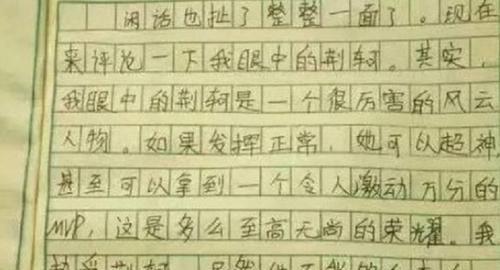 闲话也扯了整整一面了。现在
来评论一下我眼中的荆轲。其实,
我眼中的荆轲是一个很厉害的风云
人物。如果发挥正常,她可以超神
甚至可以拿到一个令人激动万分的
MVP,这是多么至高无尚的荣耀。我